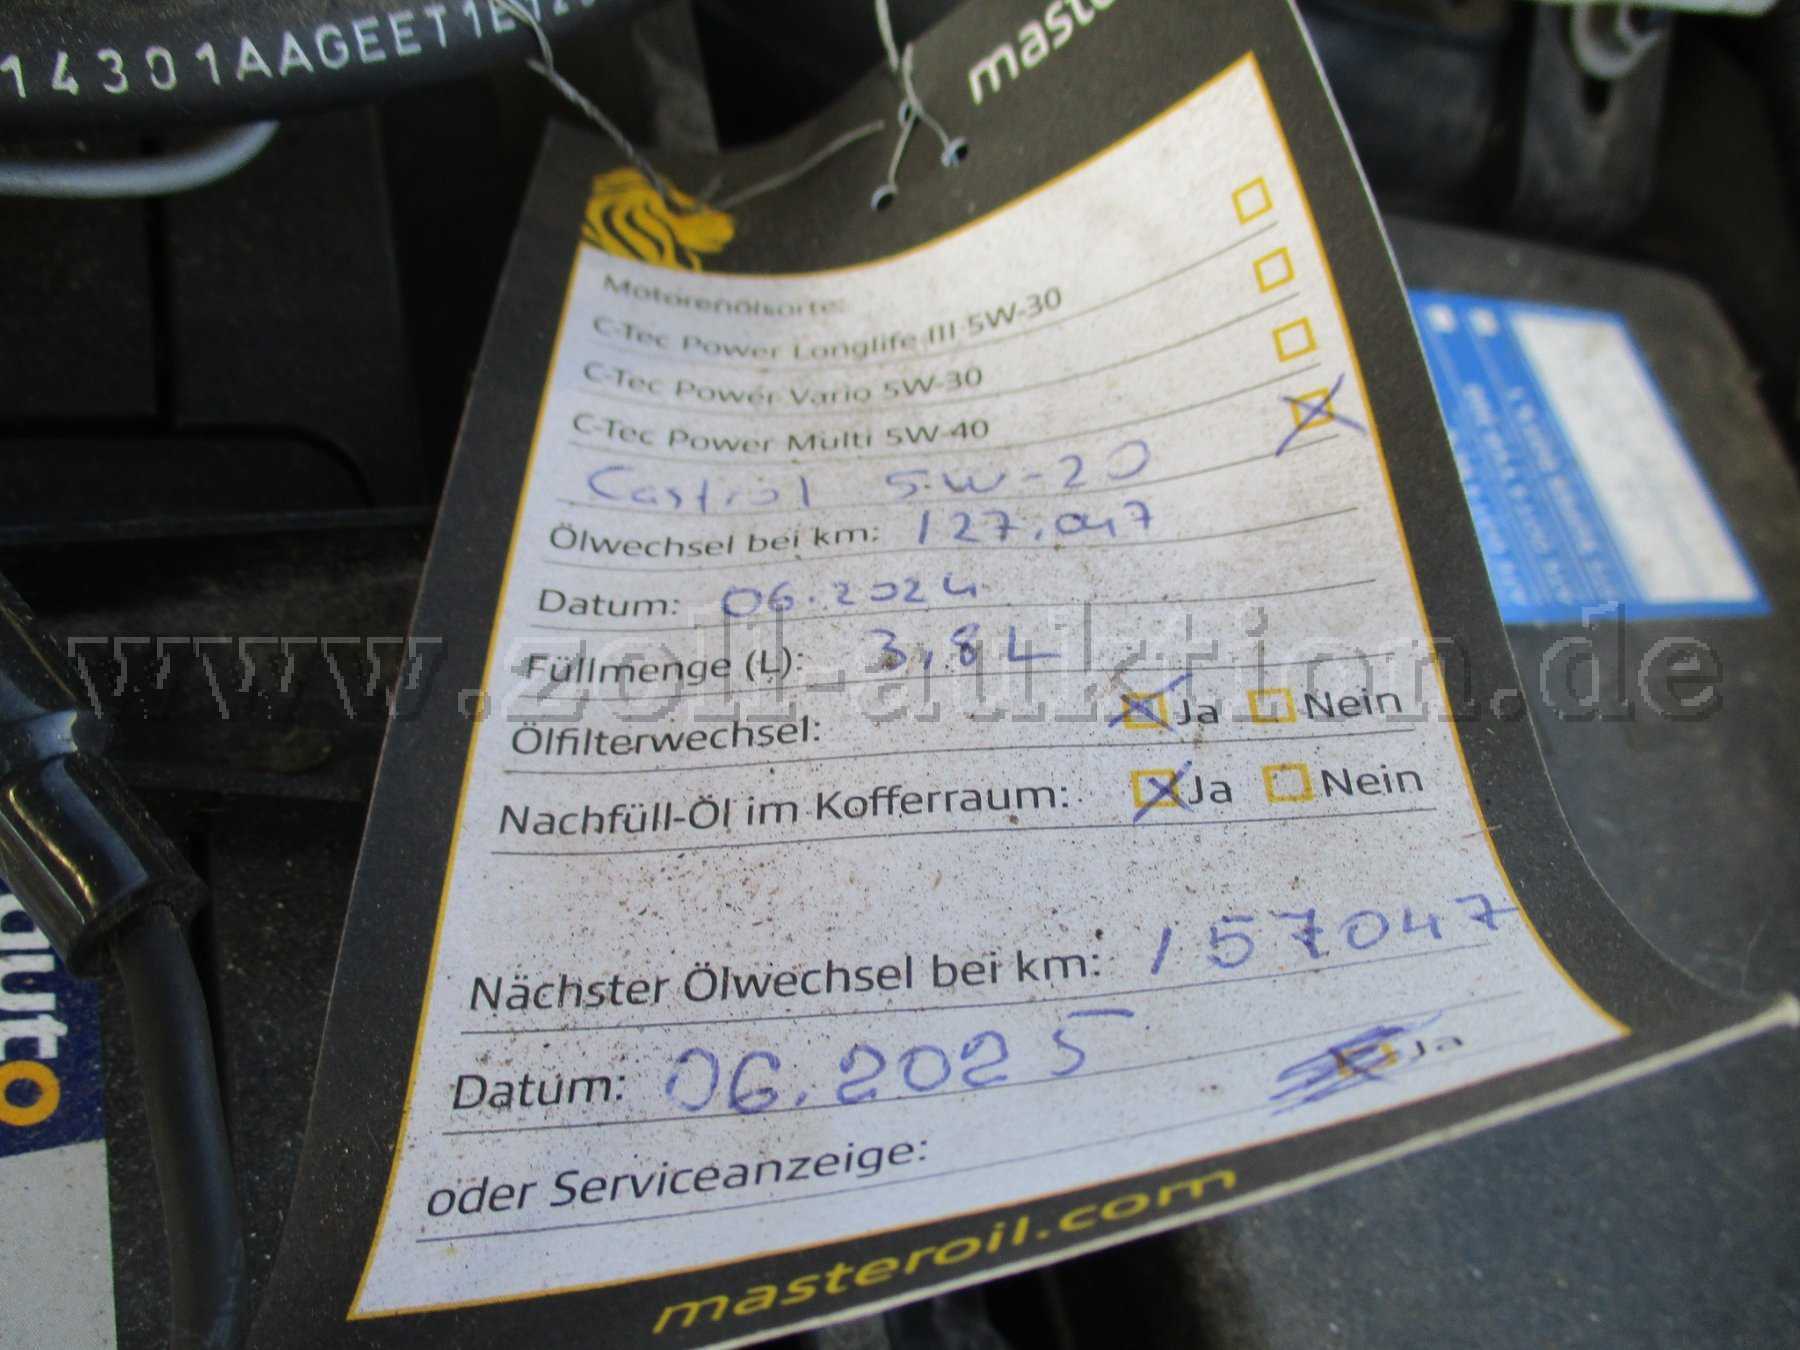 14301AAGEET1E
master
Motorenölsorte:
C-Tec Power Longlife III 5W-30
C-Tec Power Vario 5W-30
C-Tec Power Multi 5W-40
Castrol 5W-20
Ölwechsel bei km: 127.047
Datum: 06.2024
Füllmenge (L): 3,8L
www.zoll-auktion.de
Ölfilterwechsel: Ja Nein
Nachfüll-Öl im Kofferraum: Ja Nein
Nächster Ölwechsel bei km: 157047
Datum: 06.2025
oder Serviceanzeige: Ja
masteroil.com
auto